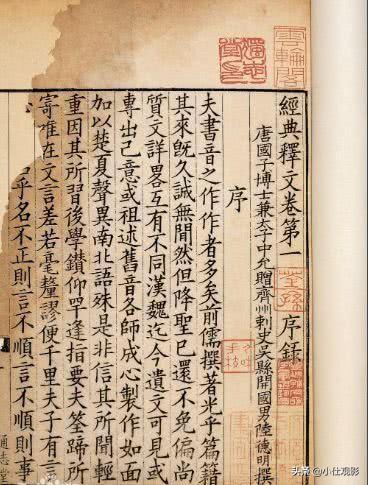 雲輪閣
經典釋文卷第一 序錄
荃孫
唐國子博士兼太子中允贈齊州刺史吳縣開國男陸德明撰
序
夫書音之作作者多矣前儒撰著光乎篇籍
其來既久誠無閒然但降聖已還不免偏尚
質文詳畧互有不同漢魏迄今遺文可見或
專出己意或祖述舊音各師成心製作如面
加以楚夏聲異南北語殊是非信其所聞輕
重因其所習後學鑽仰罕逢指要夫筌蹄所
寄唯在文言差若毫釐謬便千里夫子有言
乎名不正則言不順言不順則事
通志堂
头条 @小仕观影